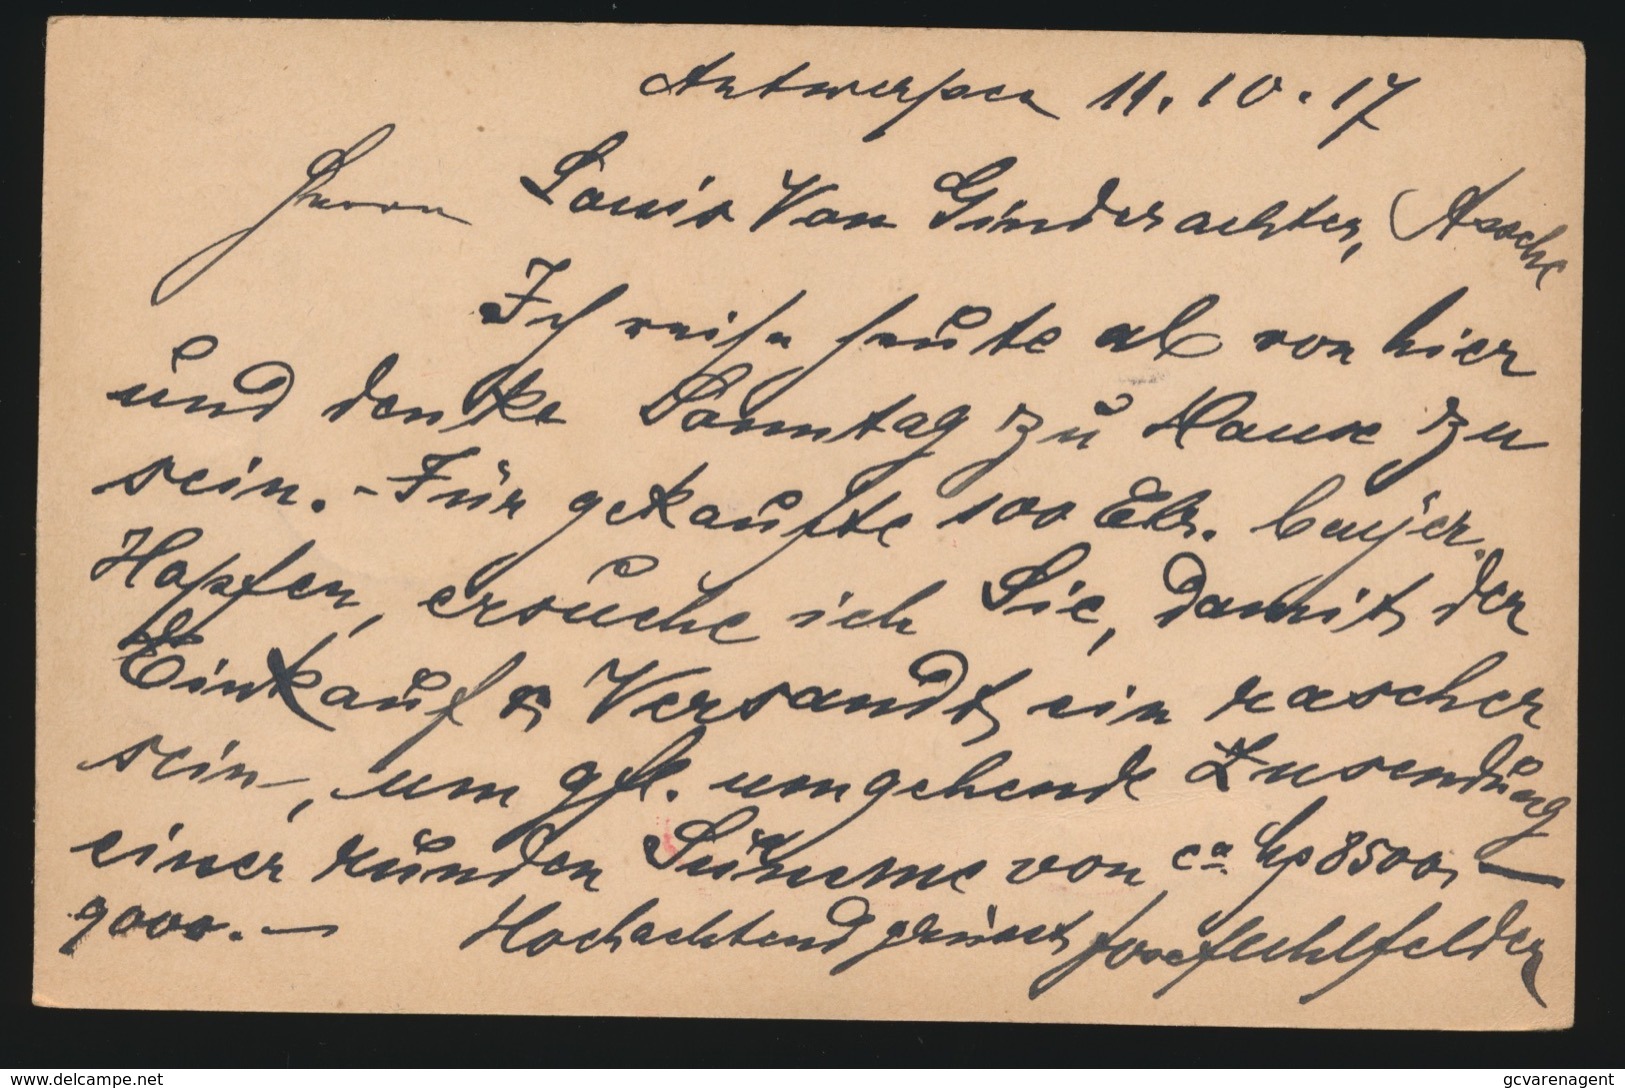 Antwerpen 11.10.17
Herrn Louis Van Ginderachter, Assche
Ich reise heute ab von hier
und denke Sonntag zu Hause zu
sein. - Für gekaufte 100 Ctr. bayer.
Hopfen, ersuche ich Sie, damit der
Einkauf & Versandt ein rascher
sein, um gfl. umgehende Zusendung
einer runden Summe von ca 8500,—
9000.—
Hochachtend grüsst Josef Uhlfelder
www.delcampe.net
gcvarenagent